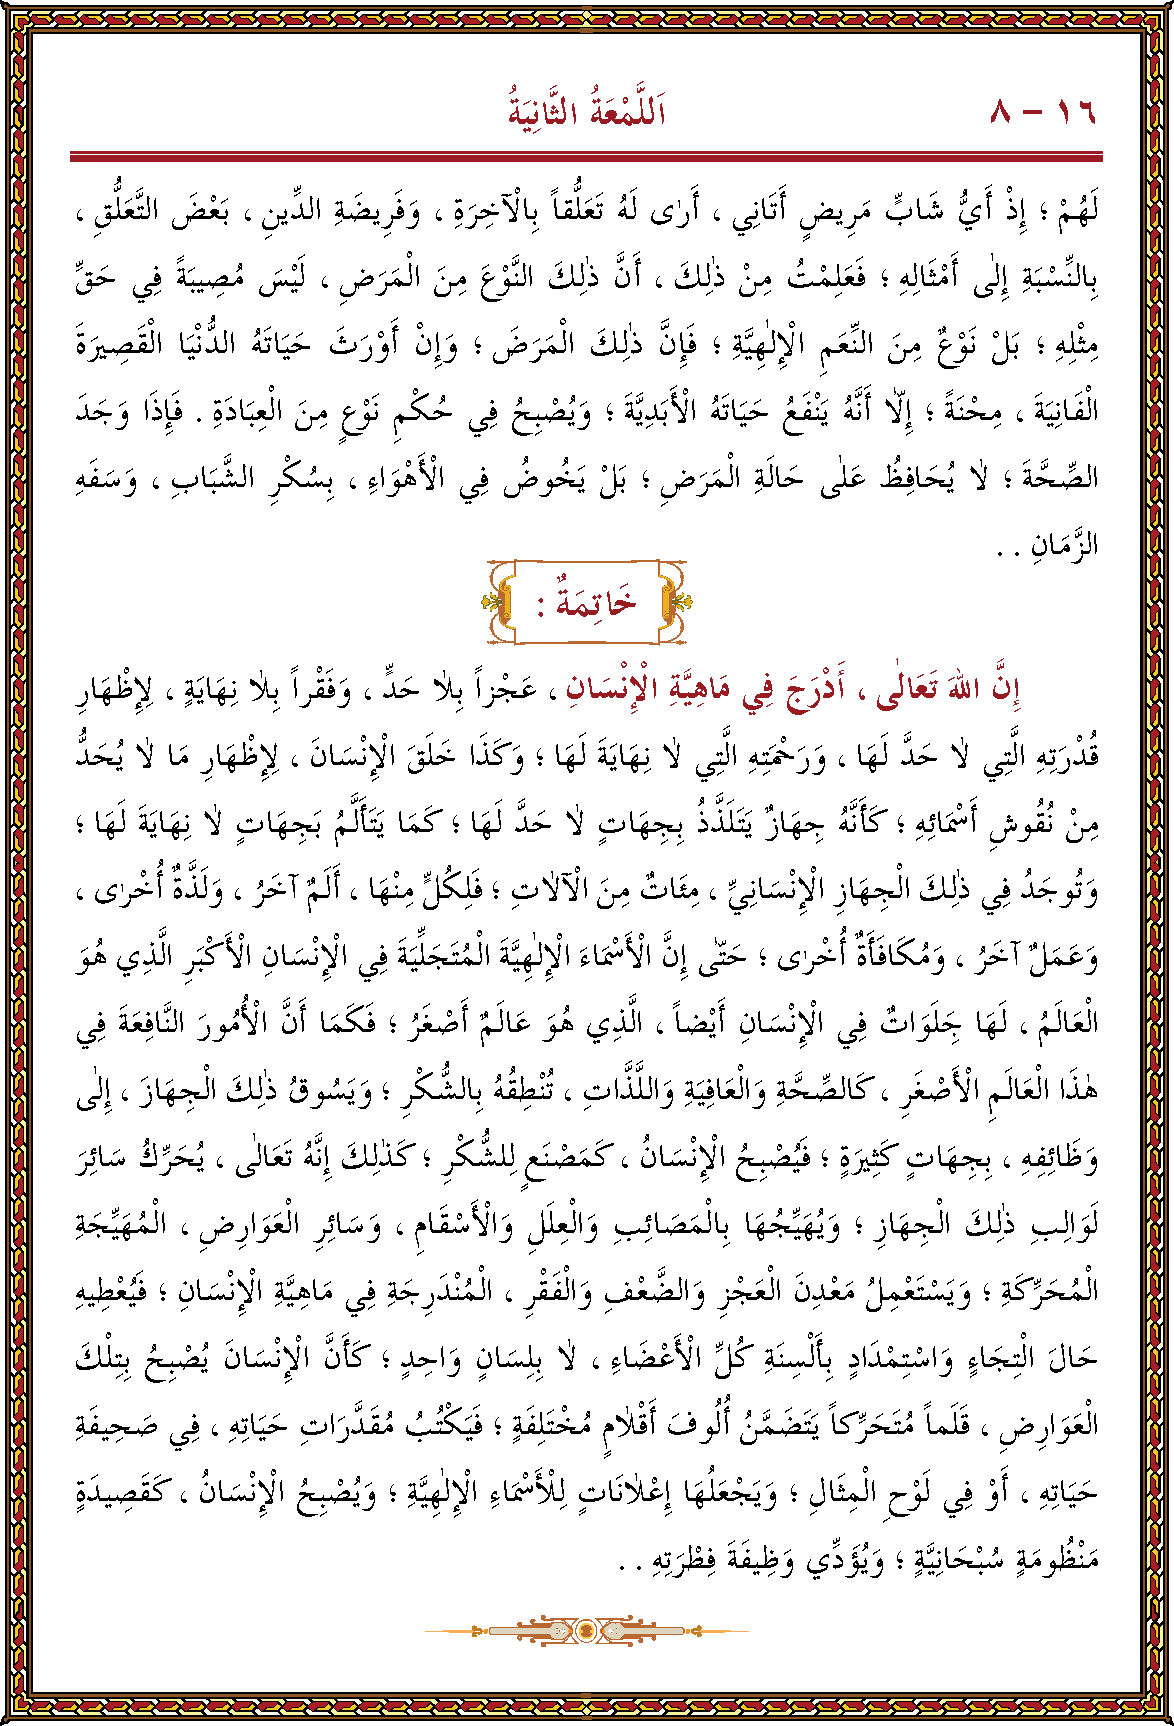 ١٦ – ٨
اَللَّمْعَةُ الثَّانِيَةُ
لَهُمْ ؛ إِذْ أَيُّ شَابٍّ مَرِيضٍ أَتَانِي ، أَرٰى لَهُ تَعَلُّقاً بِالْآخِرَةِ ، وَفَرِيضَةِ الدِّينِ ، بَعْضَ التَّعَلُّقِ ،
بِالنِّسْبَةِ إِلٰى أَمْثَالِهِ ؛ فَعَلِمْتُ مِنْ ذٰلِكَ ، أَنَّ ذٰلِكَ النَّوْعَ مِنَ الْمَرَضِ ، لَيْسَ مُصِيبَةً فِي حَقِّ
مِثْلِهِ ؛ بَلْ نَوْعٌ مِنَ النِّعَمِ الْإِلٰهِيَّةِ ؛ فَإِنَّ ذٰلِكَ الْمَرَضَ ؛ وَإِنْ أَوْرَثَ حَيَاتَهُ الدُّنْيَا الْقَصِيرَةَ
الْفَانِيَةَ ، مِحْنَةً ؛ إِلاّٰ أَنَّهُ يَنْفَعُ حَيَاتَهُ الْأَبَدِيَّةَ ؛ وَيُصْبِحُ فِي حُكْمِ نَوْعٍ مِنَ الْعِبَادَةِ . فَإِذَا وَجَدَ
الصِّحَّةَ ؛ لاٰ يُحَافِظُ عَلٰى حَالَةِ الْمَرَضِ ؛ بَلْ يَخُوضُ فِي الْأَهْوَاءِ ، بِسُكْرِ الشَّبَابِ ، وَسَفَهِ
الزَّمَانِ . .
خَاتِمَةٌ :
إِنَّ اللهَ تَعَالٰى ، أَدْرَجَ فِي مَاهِيَّةِ الْإِنْسَانِ ، عَجْزاً بِلاٰ حَدٍّ ، وَفَقْراً بِلاٰ نِهَايَةٍ ، لِإِظْهَارِ
قُدْرَتِهِ الَّتِي لاٰ حَدَّ لَهَا ، وَرَحْمَتِهِ الَّتِي لاٰ نِهَايَةَ لَهَا ؛ وَكَذَا خَلَقَ الْإِنْسَانَ ، لِإِظْهَارِ مَا لاٰ يُحَدُّ
مِنْ نُقُوشِ أَسْمَائِهِ ؛ كَأَنَّهُ جِهَازٌ يَتَلَذَّذُ بِجِهَاتٍ لاٰ حَدَّ لَهَا ؛ كَمَا يَتَأَلَّمُ بَجِهَاتٍ لاٰ نِهَايَةَ لَهَا ؛
وَتُوجَدُ فِي ذٰلِكَ الْجِهَازِ الْإِنْسَانِيِّ ، مِئَاتٌ مِنَ الْآلاٰتِ ؛ فَلِكُلٍّ مِنْهَا ، أَلَمٌ آخَرُ ، وَلَذَّةٌ أُخْرٰى ،
وَعَمَلٌ آخَرُ ، وَمُكَافَأَةٌ أُخْرٰى ؛ حَتّٰى إِنَّ الْأَسْمَاءَ الْإِلٰهِيَّةَ الْمُتَجَلِّيَةَ فِي الْإِنْسَانِ الْأَكْبَرِ الَّذِي هُوَ
الْعَالَمُ ، لَهَا جِلَوَاتٌ فِي الْإِنْسَانِ أَيْضاً ، الَّذِي هُوَ عَالَمٌ أَصْغَرُ ؛ فَكَمَا أَنَّ الْأُمُورَ النَّافِعَةَ فِي
هٰذَا الْعَالَمِ الْأَصْغَرِ ، كَالصِّحَّةِ وَالْعَافِيَةِ وَاللَّذَّاتِ ، تُنْطِقُهُ بِالشُّكْرِ ؛ وَيَسُوقُ ذٰلِكَ الْجِهَازَ ، إِلٰى
وَظَائِفِهِ ، بِجِهَاتٍ كَثِيرَةٍ ؛ فَيُصْبِحُ الْإِنْسَانُ ، كَمَصْنَعٍ لِلشُّكْرِ ؛ كَذٰلِكَ إِنَّهُ تَعَالٰى ، يُحَرِّكُ سَائِرَ
لَوَالِبِ ذٰلِكَ الْجِهَازِ ؛ وَيُهَيِّجُهَا بِالْمَصَائِبِ وَالْعِلَلِ وَالْأَسْقَامِ ، وَسَائِرِ الْعَوَارِضِ ، الْمُهَيِّجَةِ
الْمُحَرِّكَةِ ؛ وَيَسْتَعْمِلُ مَعْدِنَ الْعَجْزِ وَالضَّعْفِ وَالْفَقْرِ ، الْمُنْدَرِجَةِ فِي مَاهِيَّةِ الْإِنْسَانِ ؛ فَيُعْطِيهِ
حَالَ الْتِجَاءٍ وَاسْتِمْدَادٍ بِأَلْسِنَةِ كُلِّ الْأَعْضَاءِ ، لاٰ بِلِسَانٍ وَاحِدٍ ؛ كَأَنَّ الْإِنْسَانَ يُصْبِحُ بِتِلْكَ
الْعَوَارِضِ ، قَلَماً مُتَحَرِّكاً يَتَضَمَّنُ أُلُوفَ أَقْلاٰمٍ مُخْتَلِفَةٍ ؛ فَيَكْتُبُ مُقَدَّرَاتِ حَيَاتِهِ ، فِي صَحِيفَةِ
حَيَاتِهِ ، أَوْ فِي لَوْحِ الْمِثَالِ ؛ وَيَجْعَلُهَا إِعْلاٰنَاتٍ لِلْأَسْمَاءِ الْإِلٰهِيَّةِ ؛ وَيُصْبِحُ الْإِنْسَانُ ، كَقَصِيدَةٍ
مَنْظُومَةٍ سُبْحَانِيَّةٍ ؛ وَيُؤَدِّي وَظِيفَةَ فِطْرَتِهِ . .